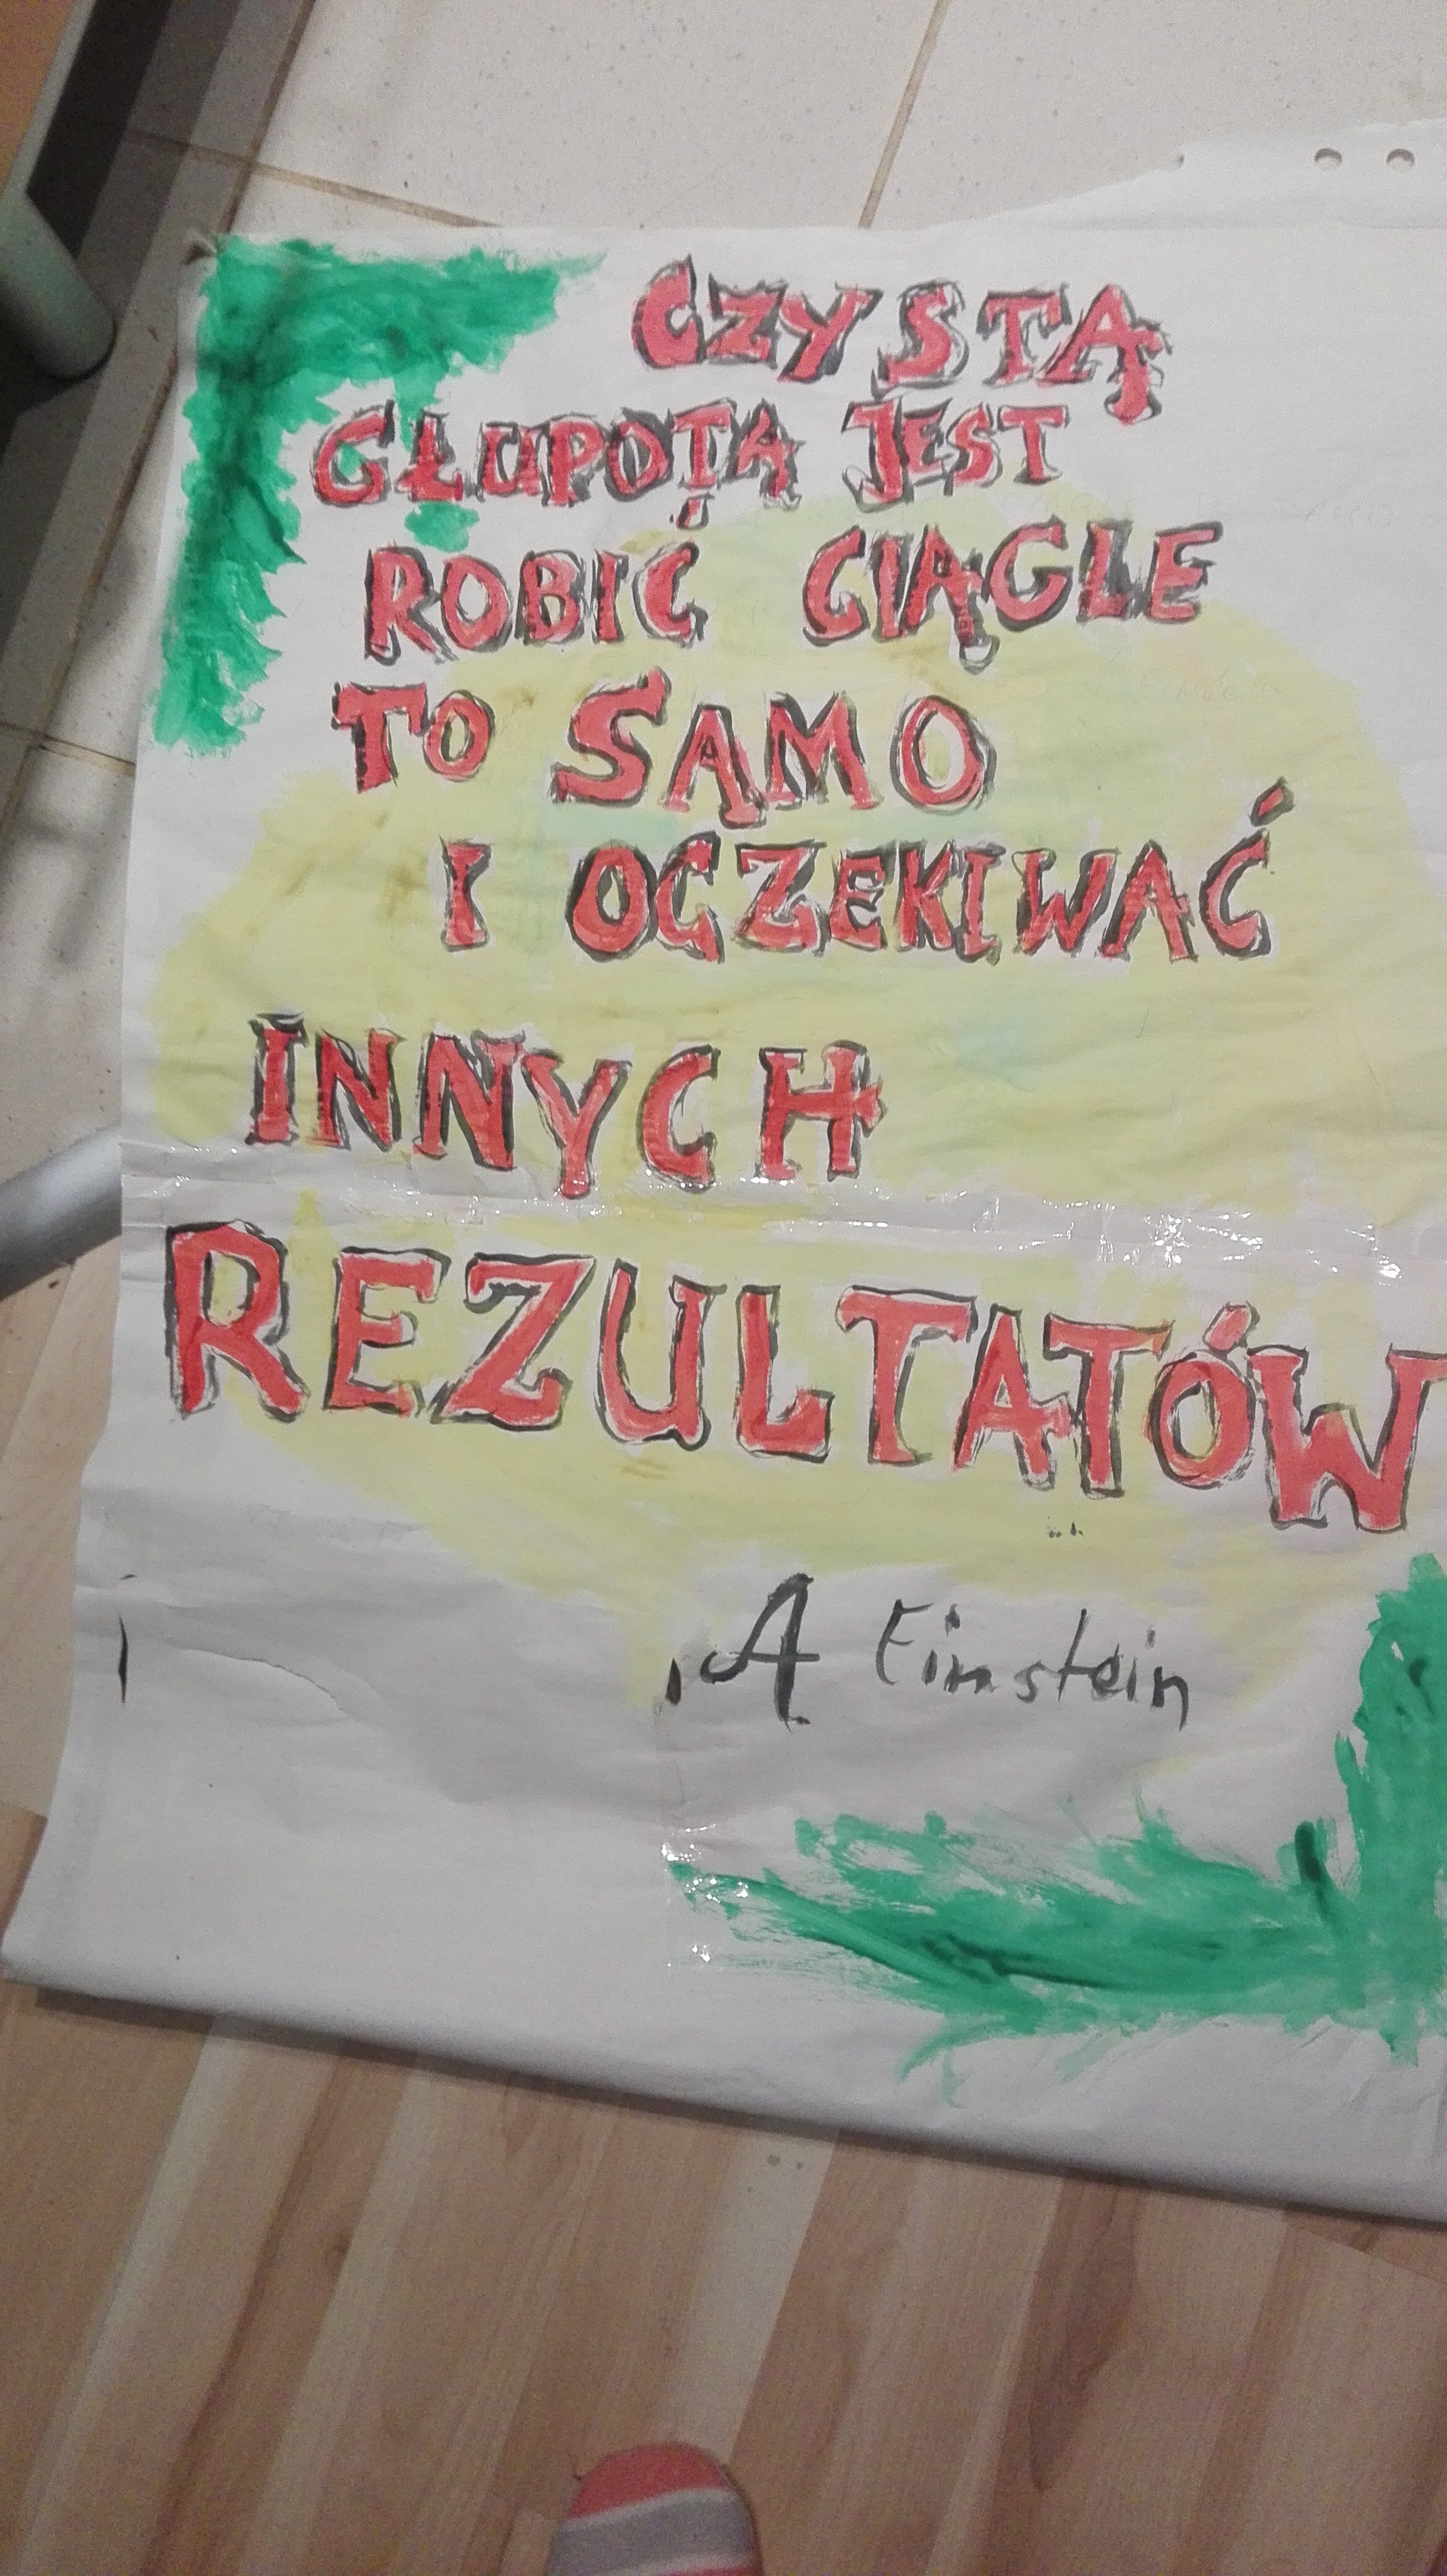 CZYSTĄ
GŁUPOTĄ JEST
ROBIĆ CIĄGLE
TO SAMO
I OCZEKIWAĆ
INNYCH
REZULTATÓW
A Einstein